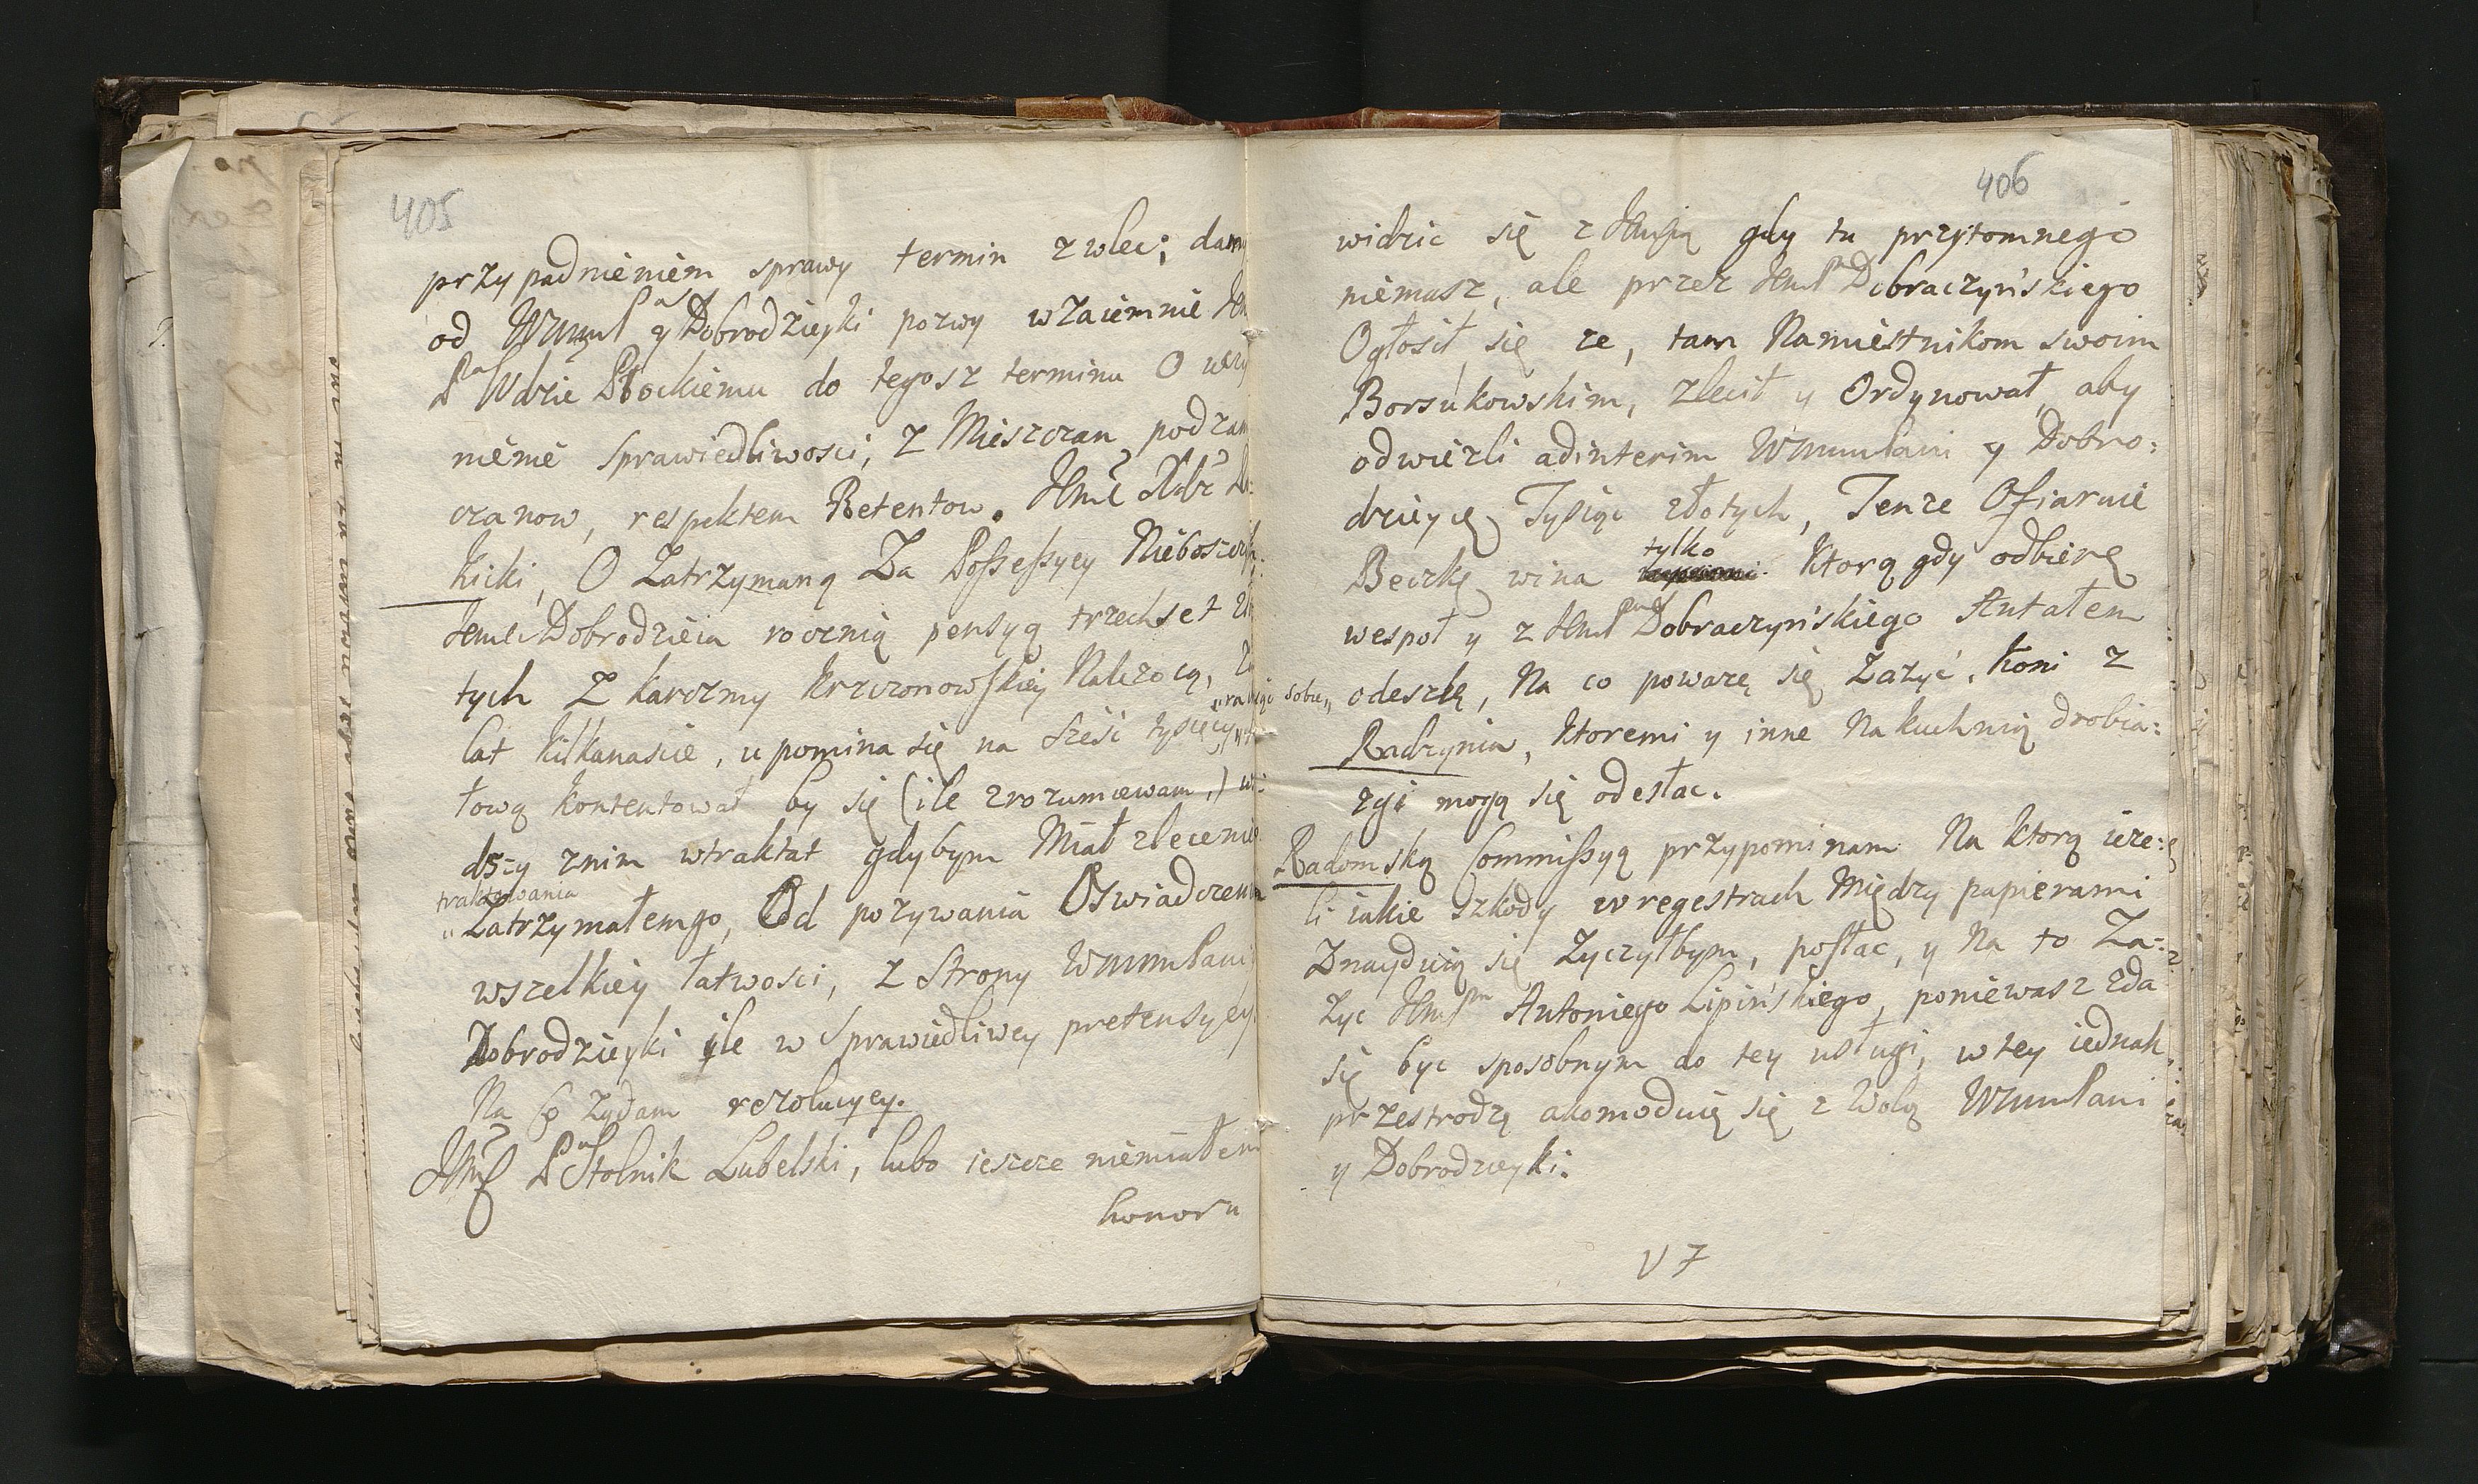 405
przypadnieniem sprawy termin zwlec; damy
od Wmm Pa y Dobrodzieyki pozwy wzaiemnie
Pa Wdzie Płockiemu do tegosz terminu O uczy
nienie sprawiedliwosci, z Mieszczan podzam
czanow, respektem Retentow.
Kicki, O Zatrzymaną Za Possessyey Nieboszczyk
Jeme Dobrodzieia rocznią pensyą trzechset zło
tych z karczmy Krzczonowskiey Należącą,
lat kilkanascie, upomina się na sześć tysięcy
rachuiąc sobie
tową kontentował by się (ile zrozumiewam,) w
dszy znim wtraktat gdybym Miał zlecenie
traktowania
Zatrzymałemgo, Od pozywania Oswiadczeniem
wszelkiey łatwosci, z strony WmmPani
Dobrodzieyki ile w sprawiedliwey pretensyey
Na co żądam rezolucyey.
Jmć Pan Stolnik Lubelski, lubo ieszcze niemiałem
honoru
406
widzic się z Jmścią gdy tu przytomnego
niemasz, ale przez JmP Dobraczyńskiego
Ogłosił się ze, tam Namiestnikom swoim
Borsukowskim, zlecił y Ordynował, aby
odwiezli adinterim WmmPani y Dobro:
dzieyce Tysiąc złotych, Tenze Ofiaruie
Beczkę wina tylko Ktorą gdy odbierę
wespoł y z JmP Dobraczyńskiego Antałem
odeszlę, Na co poważę się Zażyć, koni z
Radzynia, Ktoremi y inne Na kuchnią drobia:
zgi mogą się odesłac.
Radomską Commissyą przypominam Na ktorą ieze:
li iakie szkody w regestrach Między papierami
Znayduią się Zyczyłbym, posłac, y Na to Za-
życ JmP Antoniego Lipińskiego, poniewasz zda
się byc sposobnym do tey usługi, w tey iednak
przestrodze akomoduię się z Wolą WmmPani
y Dobrodzieyki.
V 7